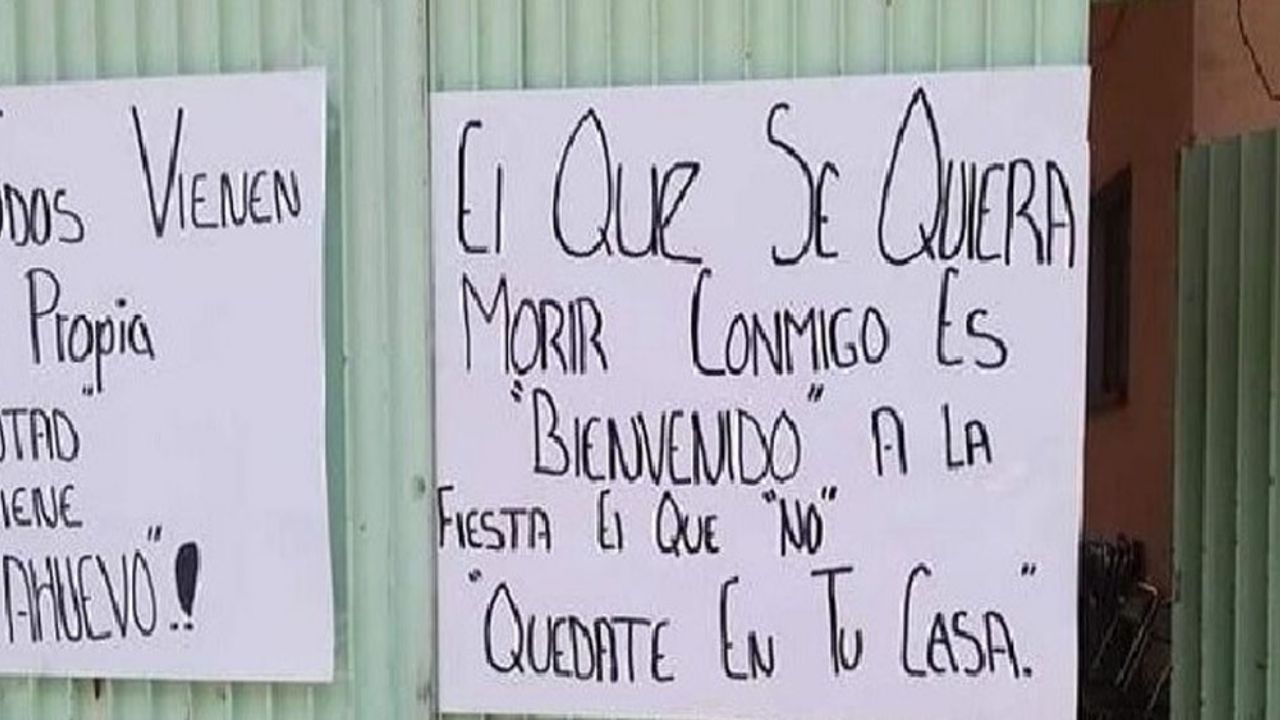 VIENEN
Propia"
IENE
AHUEVO"!
El QUE SE QUIERA
MORIR CONMIGO ES
"BIENVENIDO" A LA
FIESTA El QUE "NO"
"QUEDATE EN TU CASA."